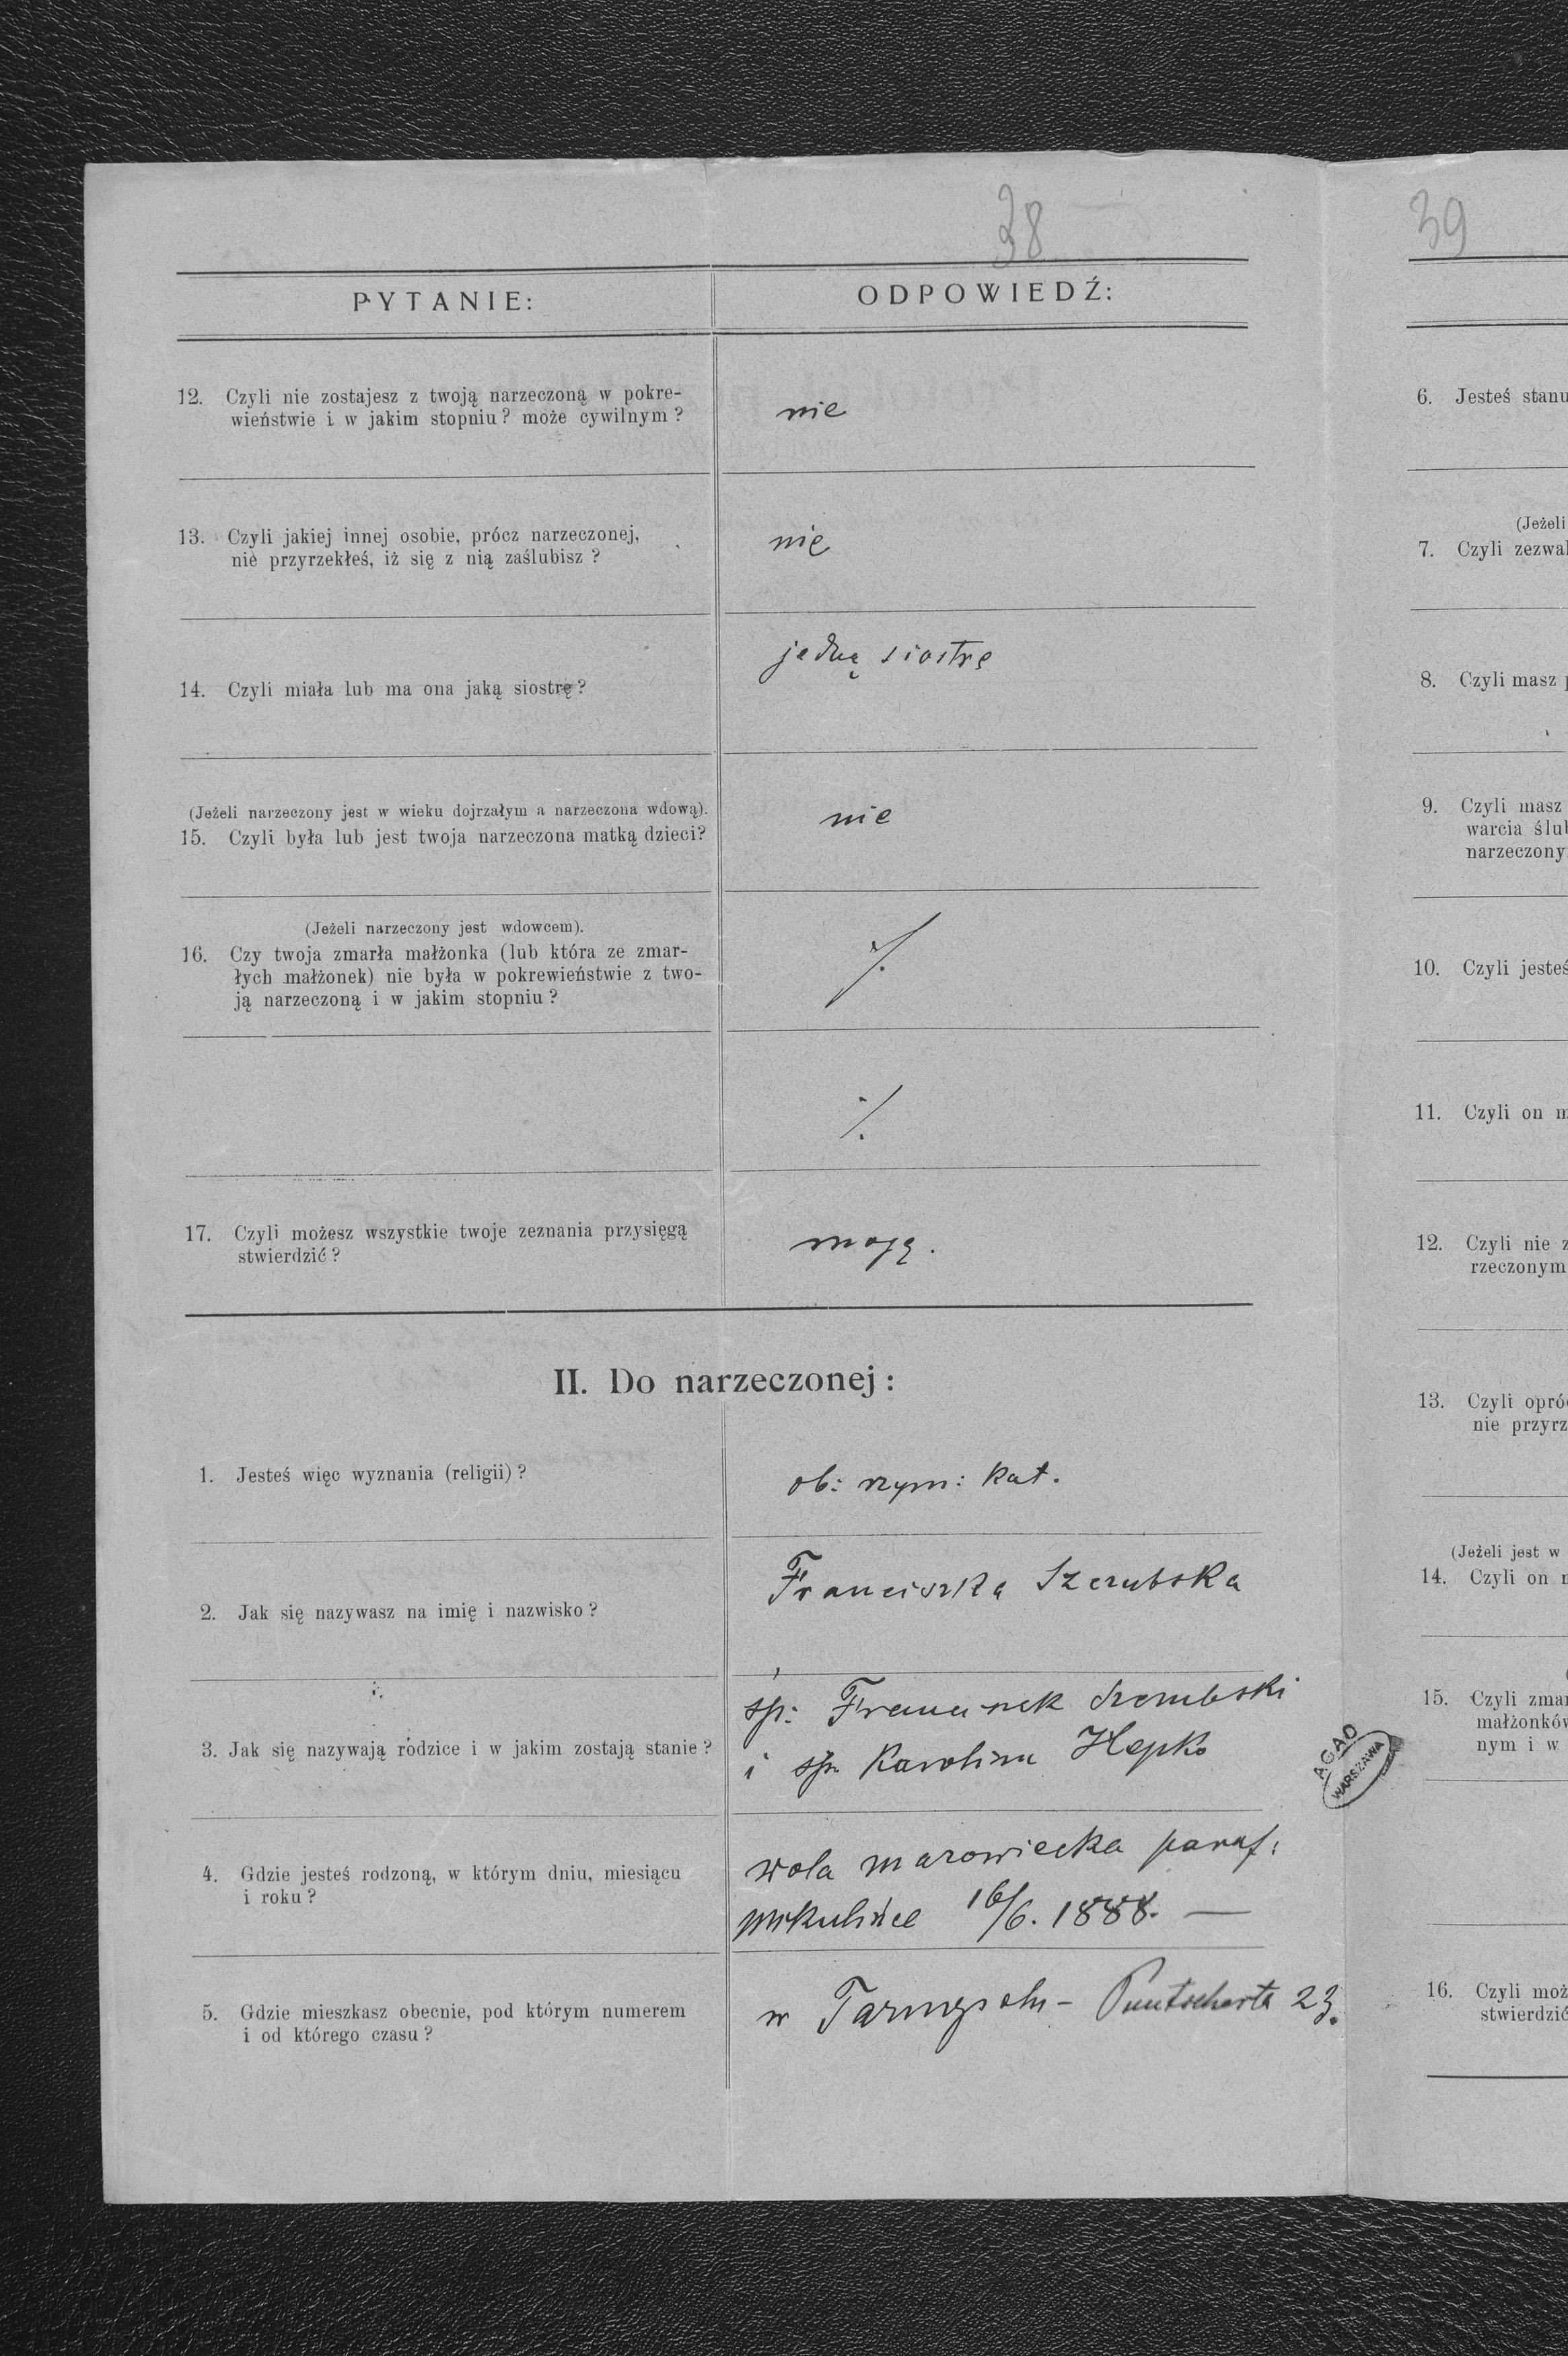 38
PYTANIE:
ODPOWIEDŹ:
12. Czyli nie zostajesz z twoją narzeczoną w pokre-
wieństwie i w jakim stopniu? może cywilnym?
nie
13. Czyli jakiej innej osobie, prócz narzeczonej,
nie przyrzekłeś, iż się z nią zaślubisz?
nie
14. Czyli miała lub ma ona jaką siostrę?
jedną siostrę
(Jeżeli narzeczony jest w wieku dojrzałym a narzeczona wdową).
15. Czyli była lub jest twoja narzeczona matką dzieci?
nie
(Jeżeli narzeczony jest wdowcem).
16. Czy twoja zmarła małżonka (lub która ze zmar-
łych małżonek) nie była w pokrewieństwie z two-
ją narzeczoną i w jakim stopniu?
·/.
·/.
17. Czyli możesz wszystkie twoje zeznania przysięgą
stwierdzić?
mogę.
II. Do narzeczonej:
1. Jesteś więc wyznania (religii)?
ob: rzym: kat.
2. Jak się nazywasz na imię i nazwisko?
Franciszka Szerubska
3. Jak się nazywają rodzice i w jakim zostają stanie?
śp: Franciszek Szerubski
i śp. Karolina Hepko
4. Gdzie jesteś rodzoną, w którym dniu, miesiącu
i roku?
wola mazowiecka paraf:
Mikulińce 16/6. 1888. —
5. Gdzie mieszkasz obecnie, pod którym numerem
i od którego czasu?
w Tarnopolu – Puntscherta 23.
AGAD
WARSZAWA
39
6. Jesteś stanu
(Jeżeli
7. Czyli zezwal
8. Czyli masz p
9. Czyli masz
warcia ślub
narzeczony
10. Czyli jesteś
11. Czyli on m
12. Czyli nie z
rzeczonym
13. Czyli opróc
nie przyrz
(Jeżeli jest w
14. Czyli on
15. Czyli zmar
małżonków
nym i w
16. Czyli moż
stwierdzić